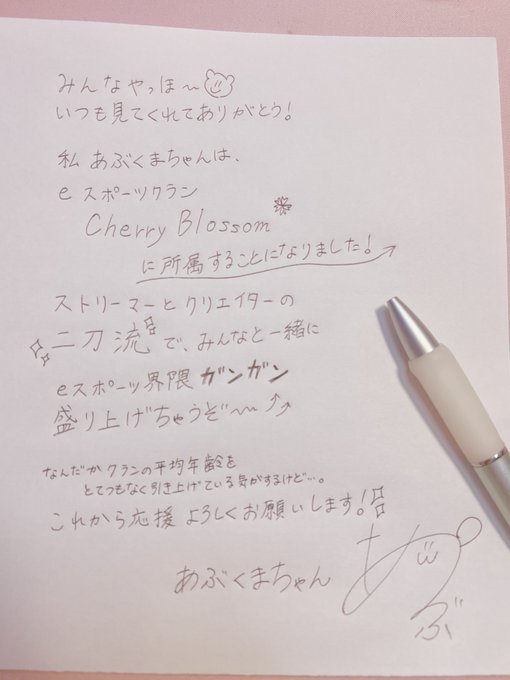 みんなやっほ〜
いつも見てくれてありがとう!
私 あぶくまちゃんは、
eスポーツクラン
Cherry Blossom
に所属することになりました!
ストリーマーとクリエイターの
二刀流で、みんなと一緒に
eスポーツ界隈ガンガン
盛り上げちゃうぞ〜〜↑↑
なんだかクランの平均年齢を
とてつもなく引き上げている気がするけど…。
これから応援よろしくお願いします!
あぶくまちゃん
あ
ぶ